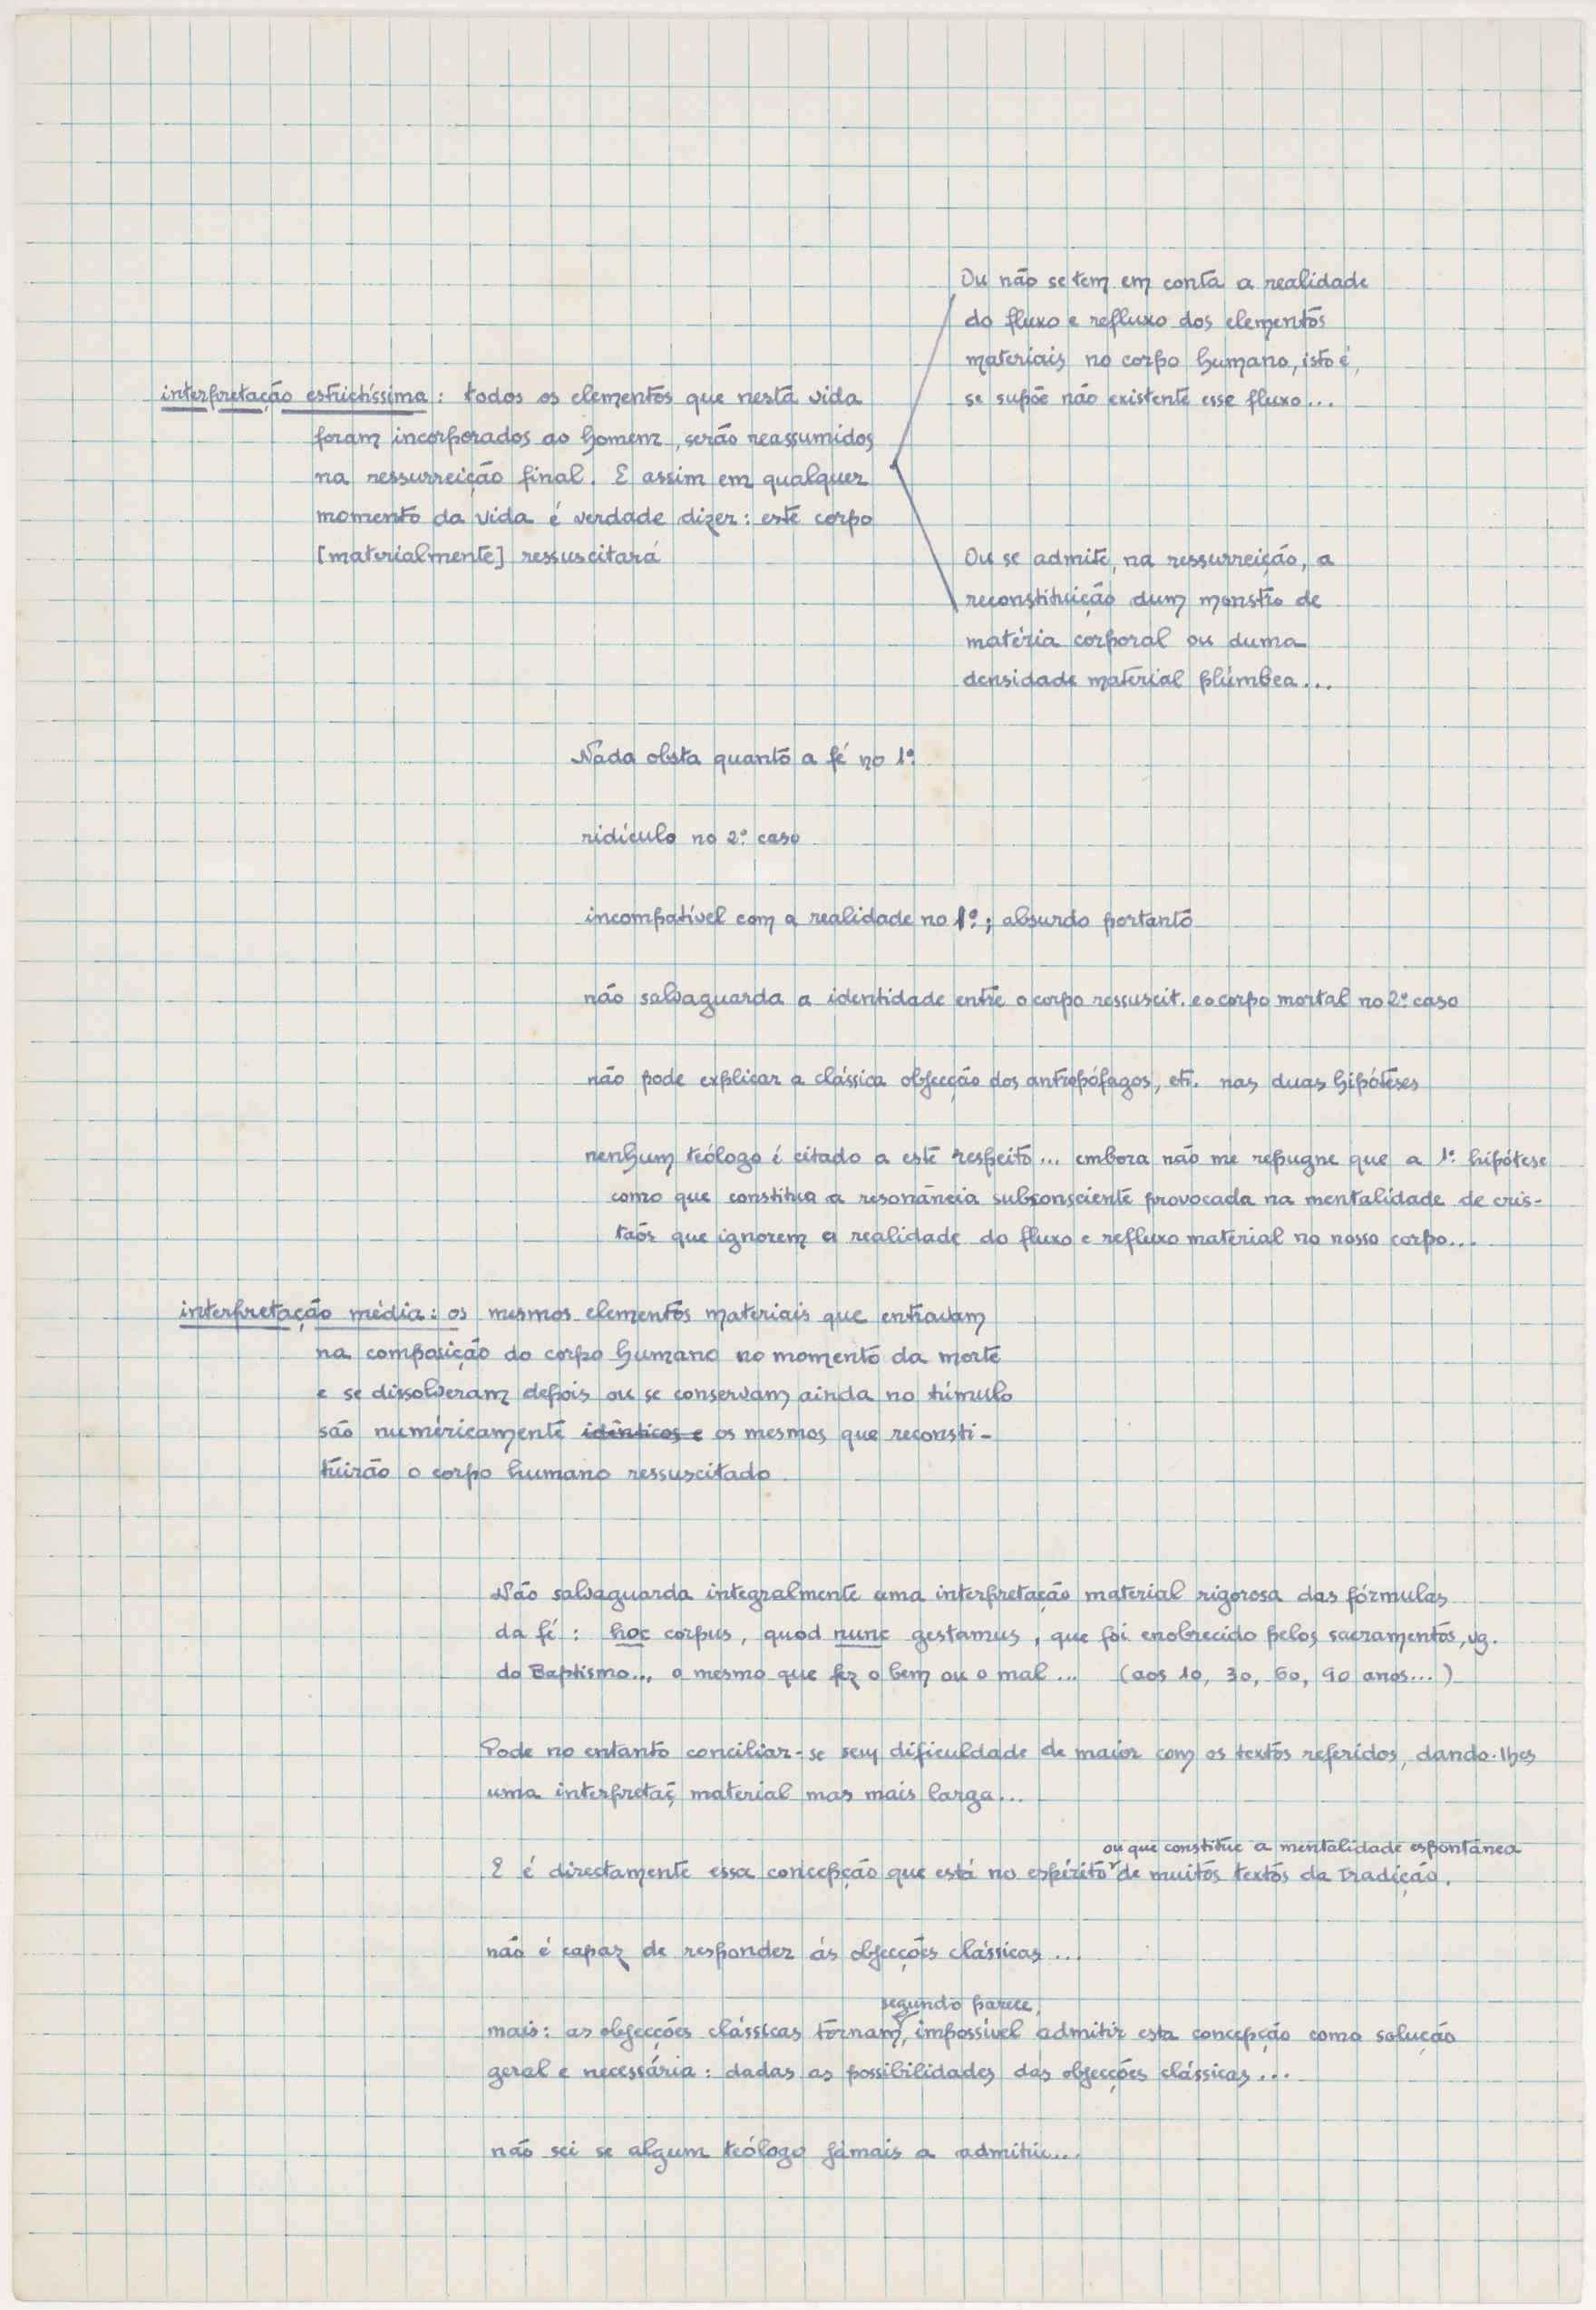 interpretação estrictíssima: todos os elementos que nesta vida
foram incorporados ao homem, serão reassumidos
na ressurreição final. E assim em qualquer
momento da vida é verdade dizer: este corpo
[materialmente] ressuscitará
Ou não se tem em conta a realidade
do fluxo e refluxo dos elementos
materiais no corpo humano, isto é,
se supõe não existente esse fluxo...
Ou se admite, na ressurreição, a
reconstituição dum monstro de
matéria corporal ou duma
densidade material plúmbea...
Nada obsta quanto a fé no 1º
ridículo no 2º caso
incompatível com a realidade no 1º; absurdo portanto
não salvaguarda a identidade entre o corpo ressuscit. e o corpo mortal no 2º caso
não pode explicar a clássica objecção dos antropófagos, etc. nas duas hipóteses
nenhum teólogo é citado a este respeito... embora não me repugne que a 1ª hipótese
como que constitua a resonância subconsciente provocada na mentalidade de cris-
tãos que ignorem a realidade do fluxo e refluxo material no nosso corpo...
interpretação média: os mesmos elementos materiais que entravam
na composição do corpo humano no momento da morte
e se dissolveram depois ou se conservam ainda no túmulo
são numéricamente idênticos e os mesmos que reconsti-
tuirão o corpo humano ressuscitado
Não salvaguarda integralmente uma interpretação material rigorosa das fórmulas
da fé: hoc corpus, quod nunc gestamus, que foi enobrecido pelos sacramentos, vg.
do Baptismo.., o mesmo que fez o bem ou o mal... (aos 10, 30, 60, 90 anos...)
Pode no entanto conciliar-se sem dificuldade de maior com os textos referidos, dando-lhes
uma interpretaç material mas mais larga...
ou que constitue a mentalidade espontânea
E é directamente essa concepção que está no espírito de muitos textos da Tradição.
não é capaz de responder ás objecções clássicas...
segundo parece,
mais: as objecções clássicas tornam, impossível admitir esta concepção como solução
geral e necessária: dadas as possibilidades das objecções clássicas...
não sei se algum teólogo jàmais a admitiu...